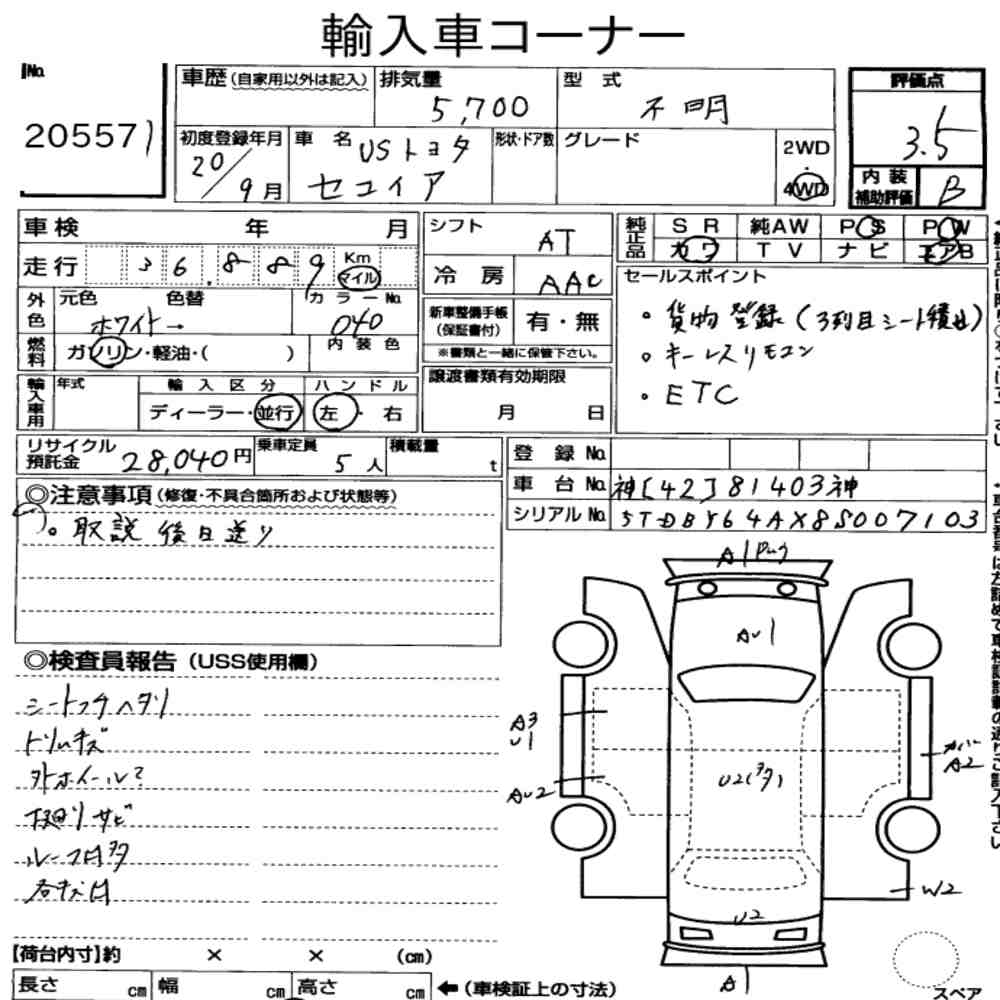 輸入車コーナー
No.
205571
車歴(自家用以外は記入) 排気量 型式 評価点
5,700 不明 3.5
初度登録年月 車名 形状・ドア数 グレード 2WD
20/9月 USトヨタ セコイア 4WD
内装補助評価 B
車検 年 月 シフト AT
純正品 SR 純AW PS PW
カワ TV ナビ エアB
走行 36,889 Km マイル
冷房 AAC
セールスポイント
外色 元色 色替 カラーNo.
ホワイト→ 040
新車整備手帳(保証書付) 有・無
※書類と一緒に保管下さい。
・貨物登録(3列目シート積込)
・キーレスリモコン
・ETC
燃料 ガソリン・軽油・( ) 内装色
輸入車用 年式 輸入区分 ハンドル
ディーラー・並行 左・右
譲渡書類有効期限
月 日
リサイクル預託金 28,040円 乗車定員 5人 積載量 t
登録No.
車台No. 神[42]81403神
シリアルNo. 5TDBY64AX8S007103
◎注意事項(修復・不具合箇所および状態等)
。取説後日送り
◎検査員報告(USS使用欄)
シートスレヘタリ
ドリムキズ
外ホイールキズ
下廻りサビ
A1
AU1
A3
U1
AU2
U2(ヌタ)
カバー
A2
W2
U2
A1
【荷台内寸】約 × × (cm)
長さ cm 幅 cm 高さ cm ←(車検証上の寸法)
スペア